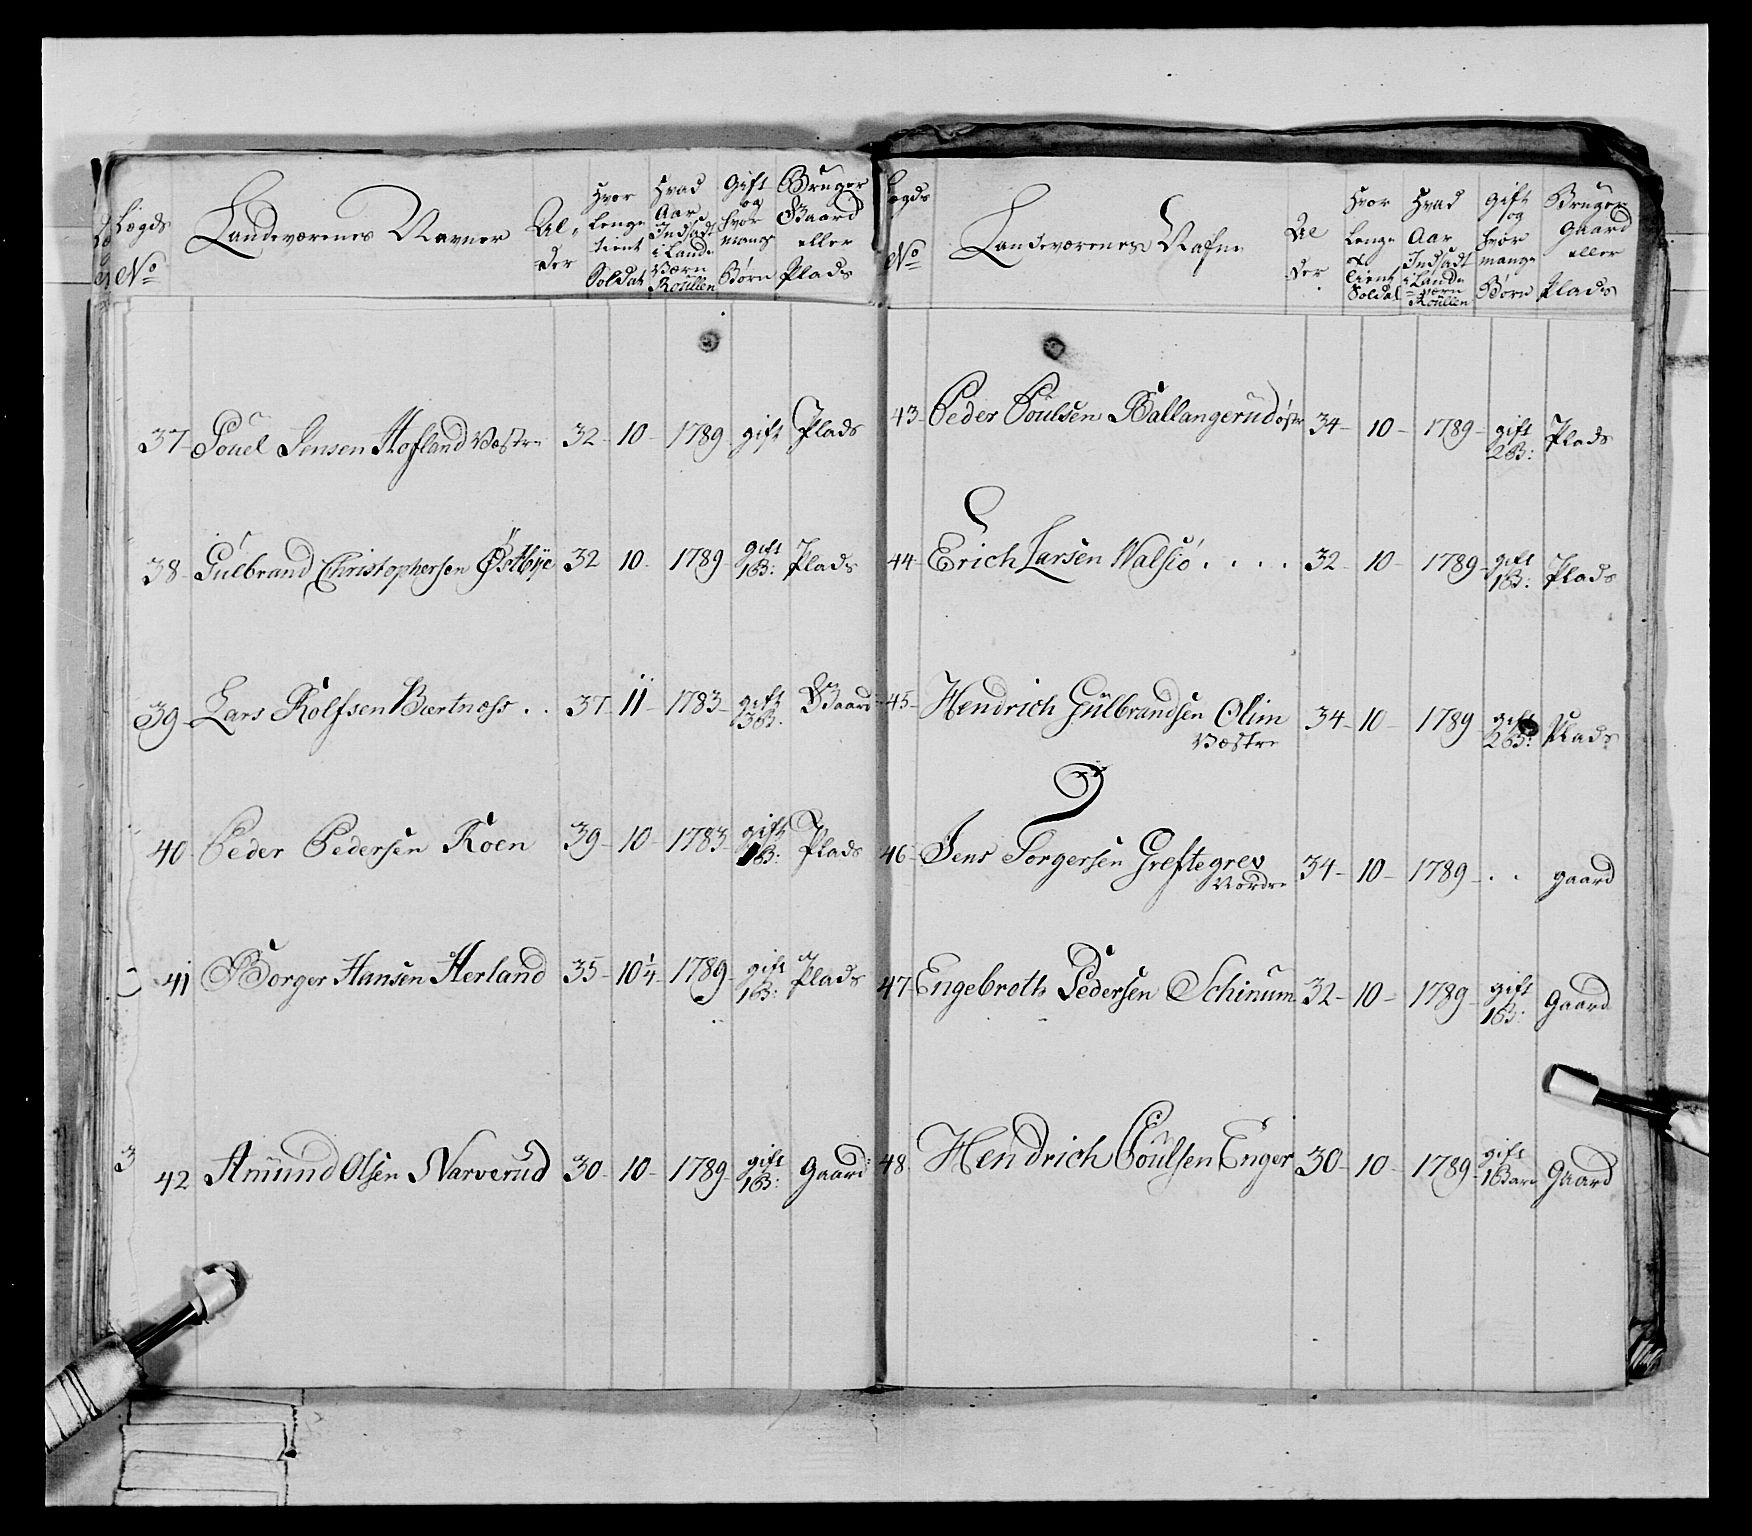 Lægds No
Landeværenes Navner
Al-der
Hvor lenge tient Soldat
Hvad Aar Indsadt i Lande Værn Roullen
Gift og hvor mange Børn
Bruger Gaard eller Plads
37- Pouel Jensen Hofland Væstre 32- 10- 1789- gift Plads
38- Gulbrand Christophersen Østbÿe 32 10- 1789- gift 1 B: Plads
39- Lars Rolfsen Bertnæss . . 37- 11- 1783- gift 3 B: Gaard
40- Peder Pedersen Koen 39- 10- 1783- gift 1 B: Plads
41 Borger Hansen Herland 35- 10 1/4- 1789- gift 1 B: Plads
3
42 Amund Olsen Narverud 30- 10- 1789- gift 1 B: Gaard
Lægds No
Landeværenes Nafne
Al der
Hvor Lenge tient Soldat
Hvad Aar Indsadt i Lande værn Roullen
gift og hvor mange Børn
Bruger Gaard eller Plads
43- Peder Poulsen Ballangerud østr 34- 10- 1789- gift 2 B: Plads
44- Erich Larsen Valsiø . . . . 32- 10- 1789- gift 1 B: Plads
45- Hendrich Gulbrandsen Olim Væstre 34- 10- 1789 gift 2 B: Plads
46- Jens Torgersen Greftegrev Nordre 34- 10- 1789- . . gaard
47 Engebreth Pedersen Schinum 32- 10- 1789- gift 1 B: Gaard
48. Hendrich Poulsen Enger 30- 10- 1789- gift 1 Barn Gaard